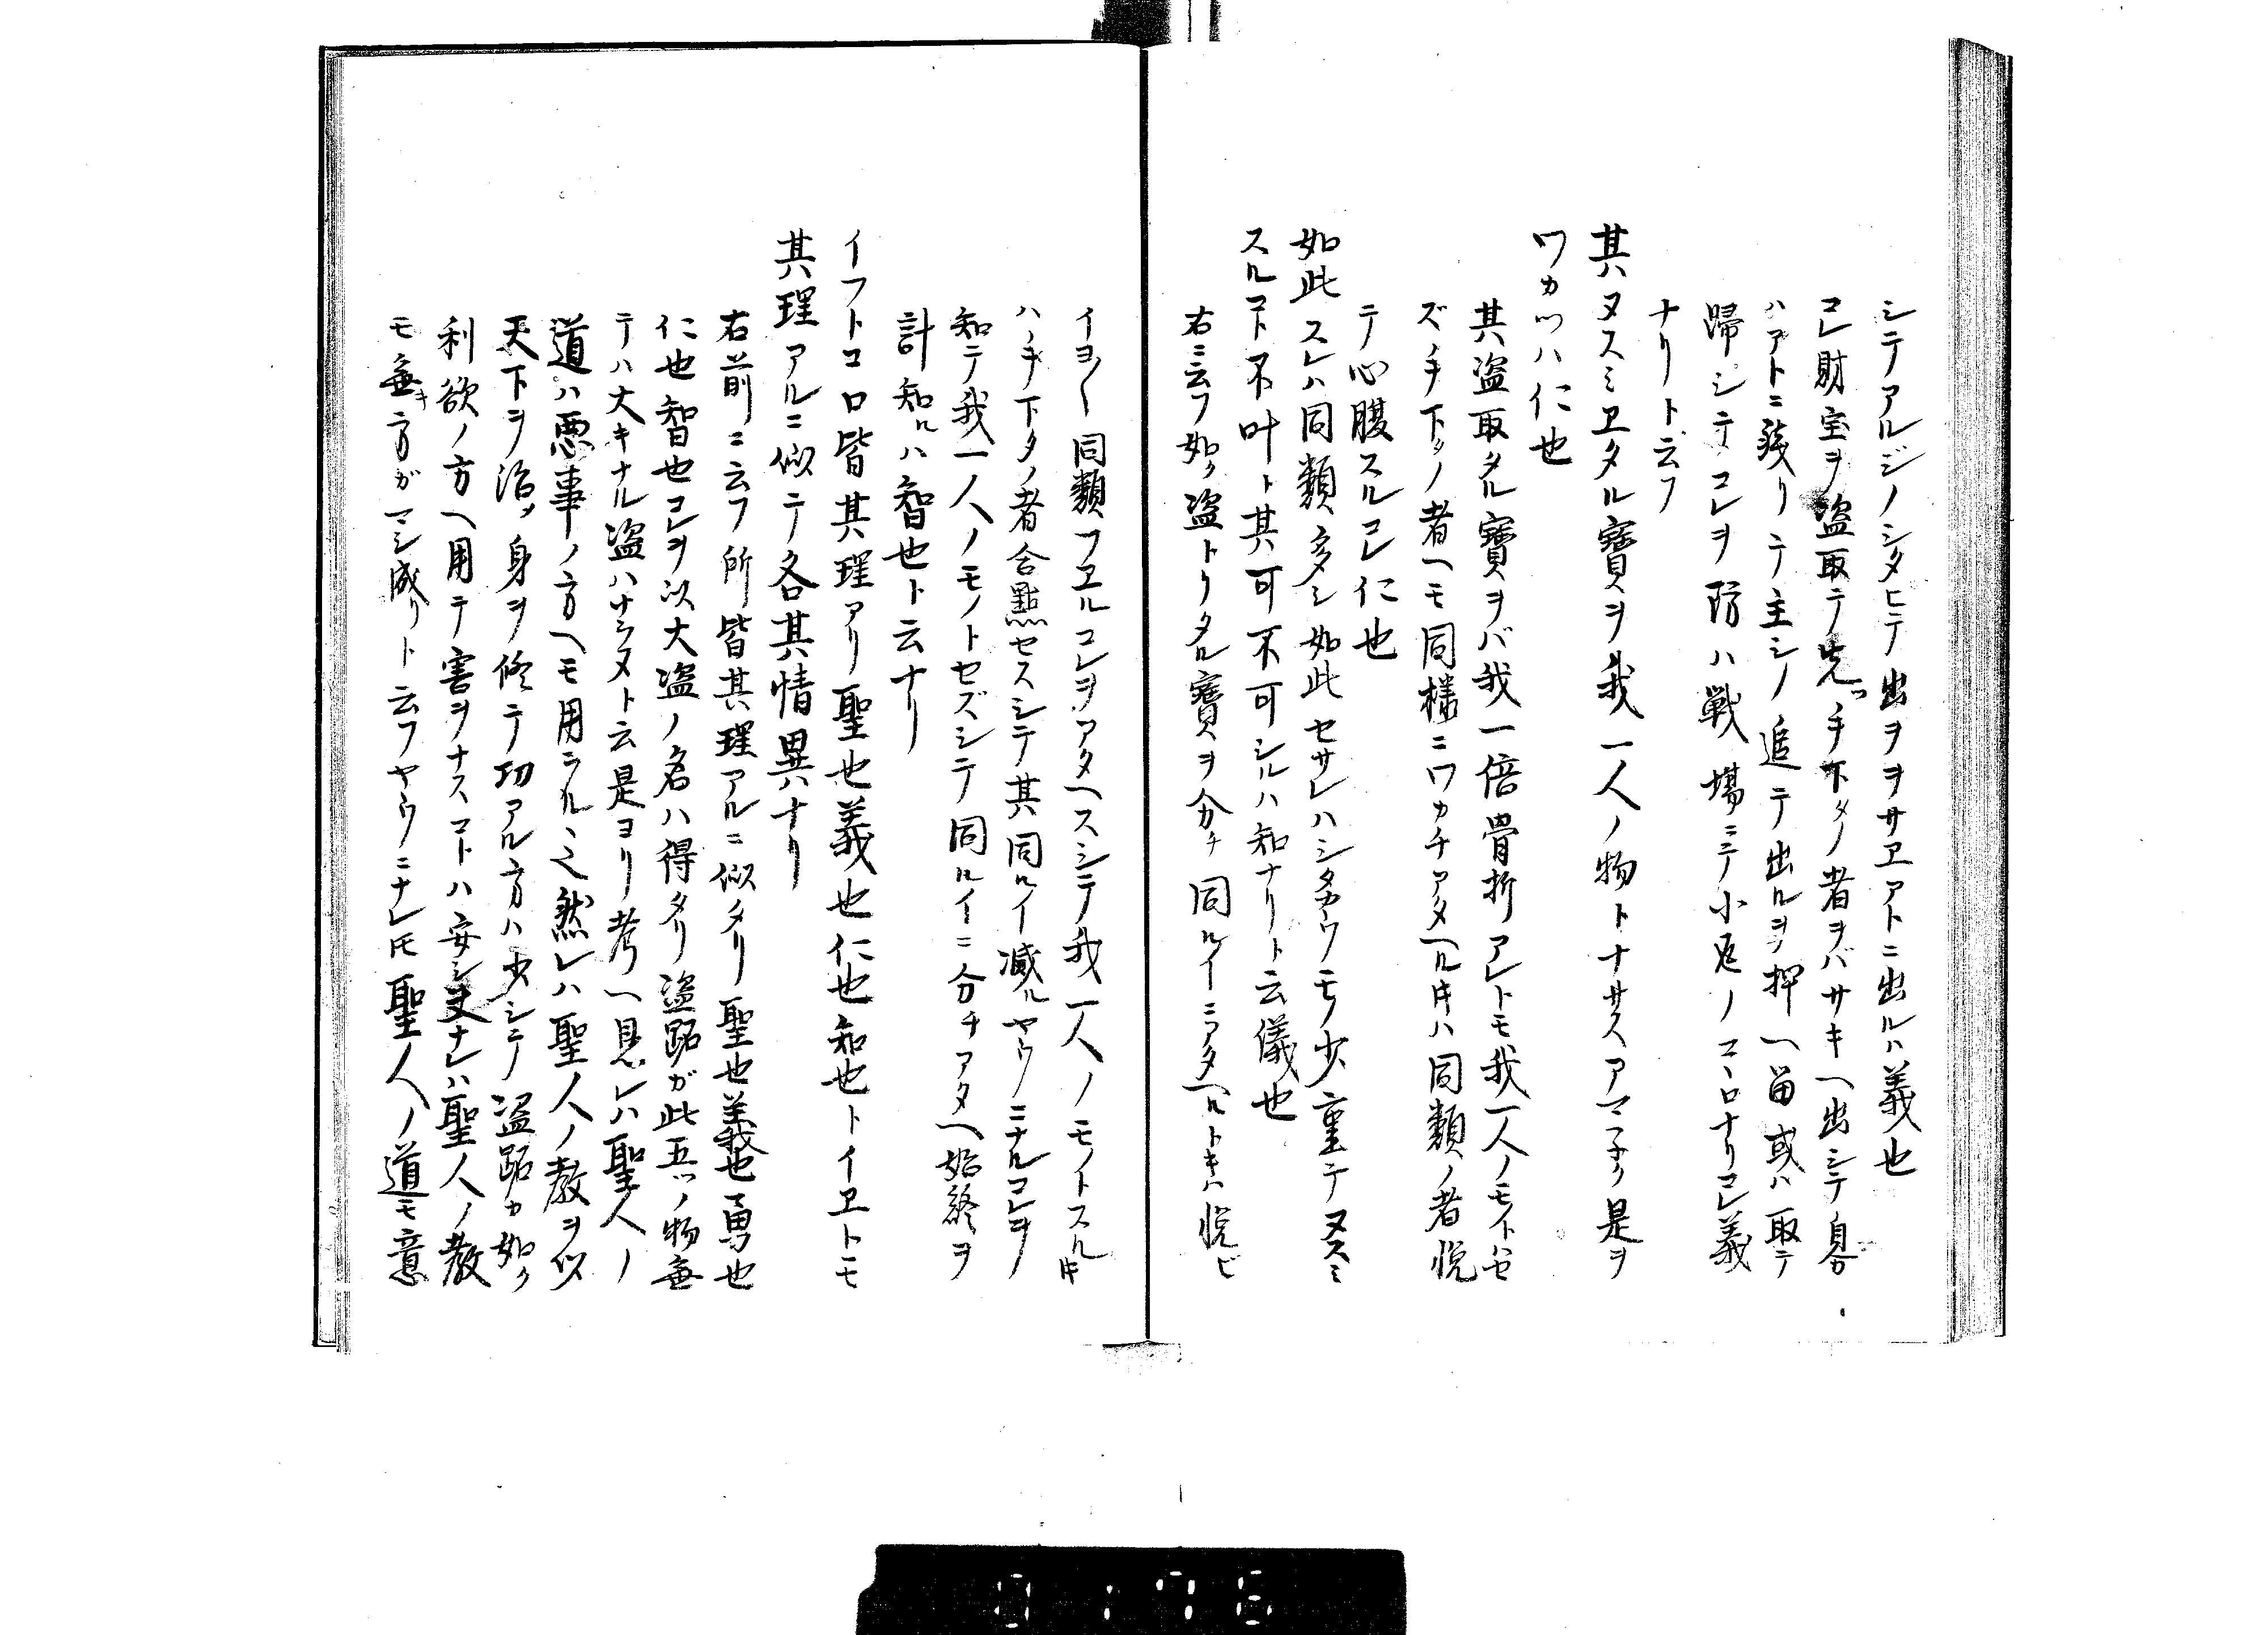 シテアルジノシタヒテ出ヲヲサヱアトニ出ルハ義也
コレ財宝ヲ盗取テ先ツ手下タノ者ヲバサキヘ出シテ自分
ハアトニ残リテ主シノ追テ出ルヲ押ヘ留或ハ取テ
帰シテコレヲ防ハ戦場ニテ小返ノコヽロナリコレ義
ナリト云フ
其ヌスミヱタル寶ヲ我一人ノ物トナサスアマネク是ヲ
ワカツハ仁也
其盗取タル寶ヲバ我一倍骨折アレトモ我一人ノモノトセ
ズ手下タノ者ヘモ同様ニワカチアタヘル㕝ハ同類ノ者悦
テ心腹スルコレ仁也
如此スレハ同類多シ如此セサレハシタカウモノ少重テヌスミ
スルヿ不叶ト其可不可シルハ知ナリト云儀也
右ニ云フ如ク盗トリタル寶ヲ分チ同ルイニアタヘルトキハ悦ビ
イヨ〱同類フヱルコレヲアタヘスシテ我一人ノモノトスル㕝
ハ手下タノ者合點セスシテ其同ルイ減ルヤウニナルコレヲ
知テ我一人ノモノトセズシテ同ルイニ分チアタヘ始終ヲ
計知ルハ智也ト云ナリ
イフトコロ皆其理アリ聖也義也仁也知也トイヱトモ
其理アルニ似テ各其情異ナリ
右前ニ云フ所皆其理アルニ似タリ聖也義也勇也
仁也智也コレヲ以大盗ノ名ハ得タリ盗跖が此五ツノ物無
テハ大キナル盗ハナラヌト云是ヨリ考ヘ見レハ聖人ノ
道ハ悪事ノ方ヘモ用ラルヽ然レハ聖人ノ教ヲ以
天下ヲ治メ身ヲ修テ功アル方ハ少シテ盗跖カ如ク
利欲ノ方ヘ用テ害ヲナスヿハ安シ夫ナレハ聖人ノ教
モ無キ方がマシ成リト云フヤウニナレ𪜈聖人ノ道モ意